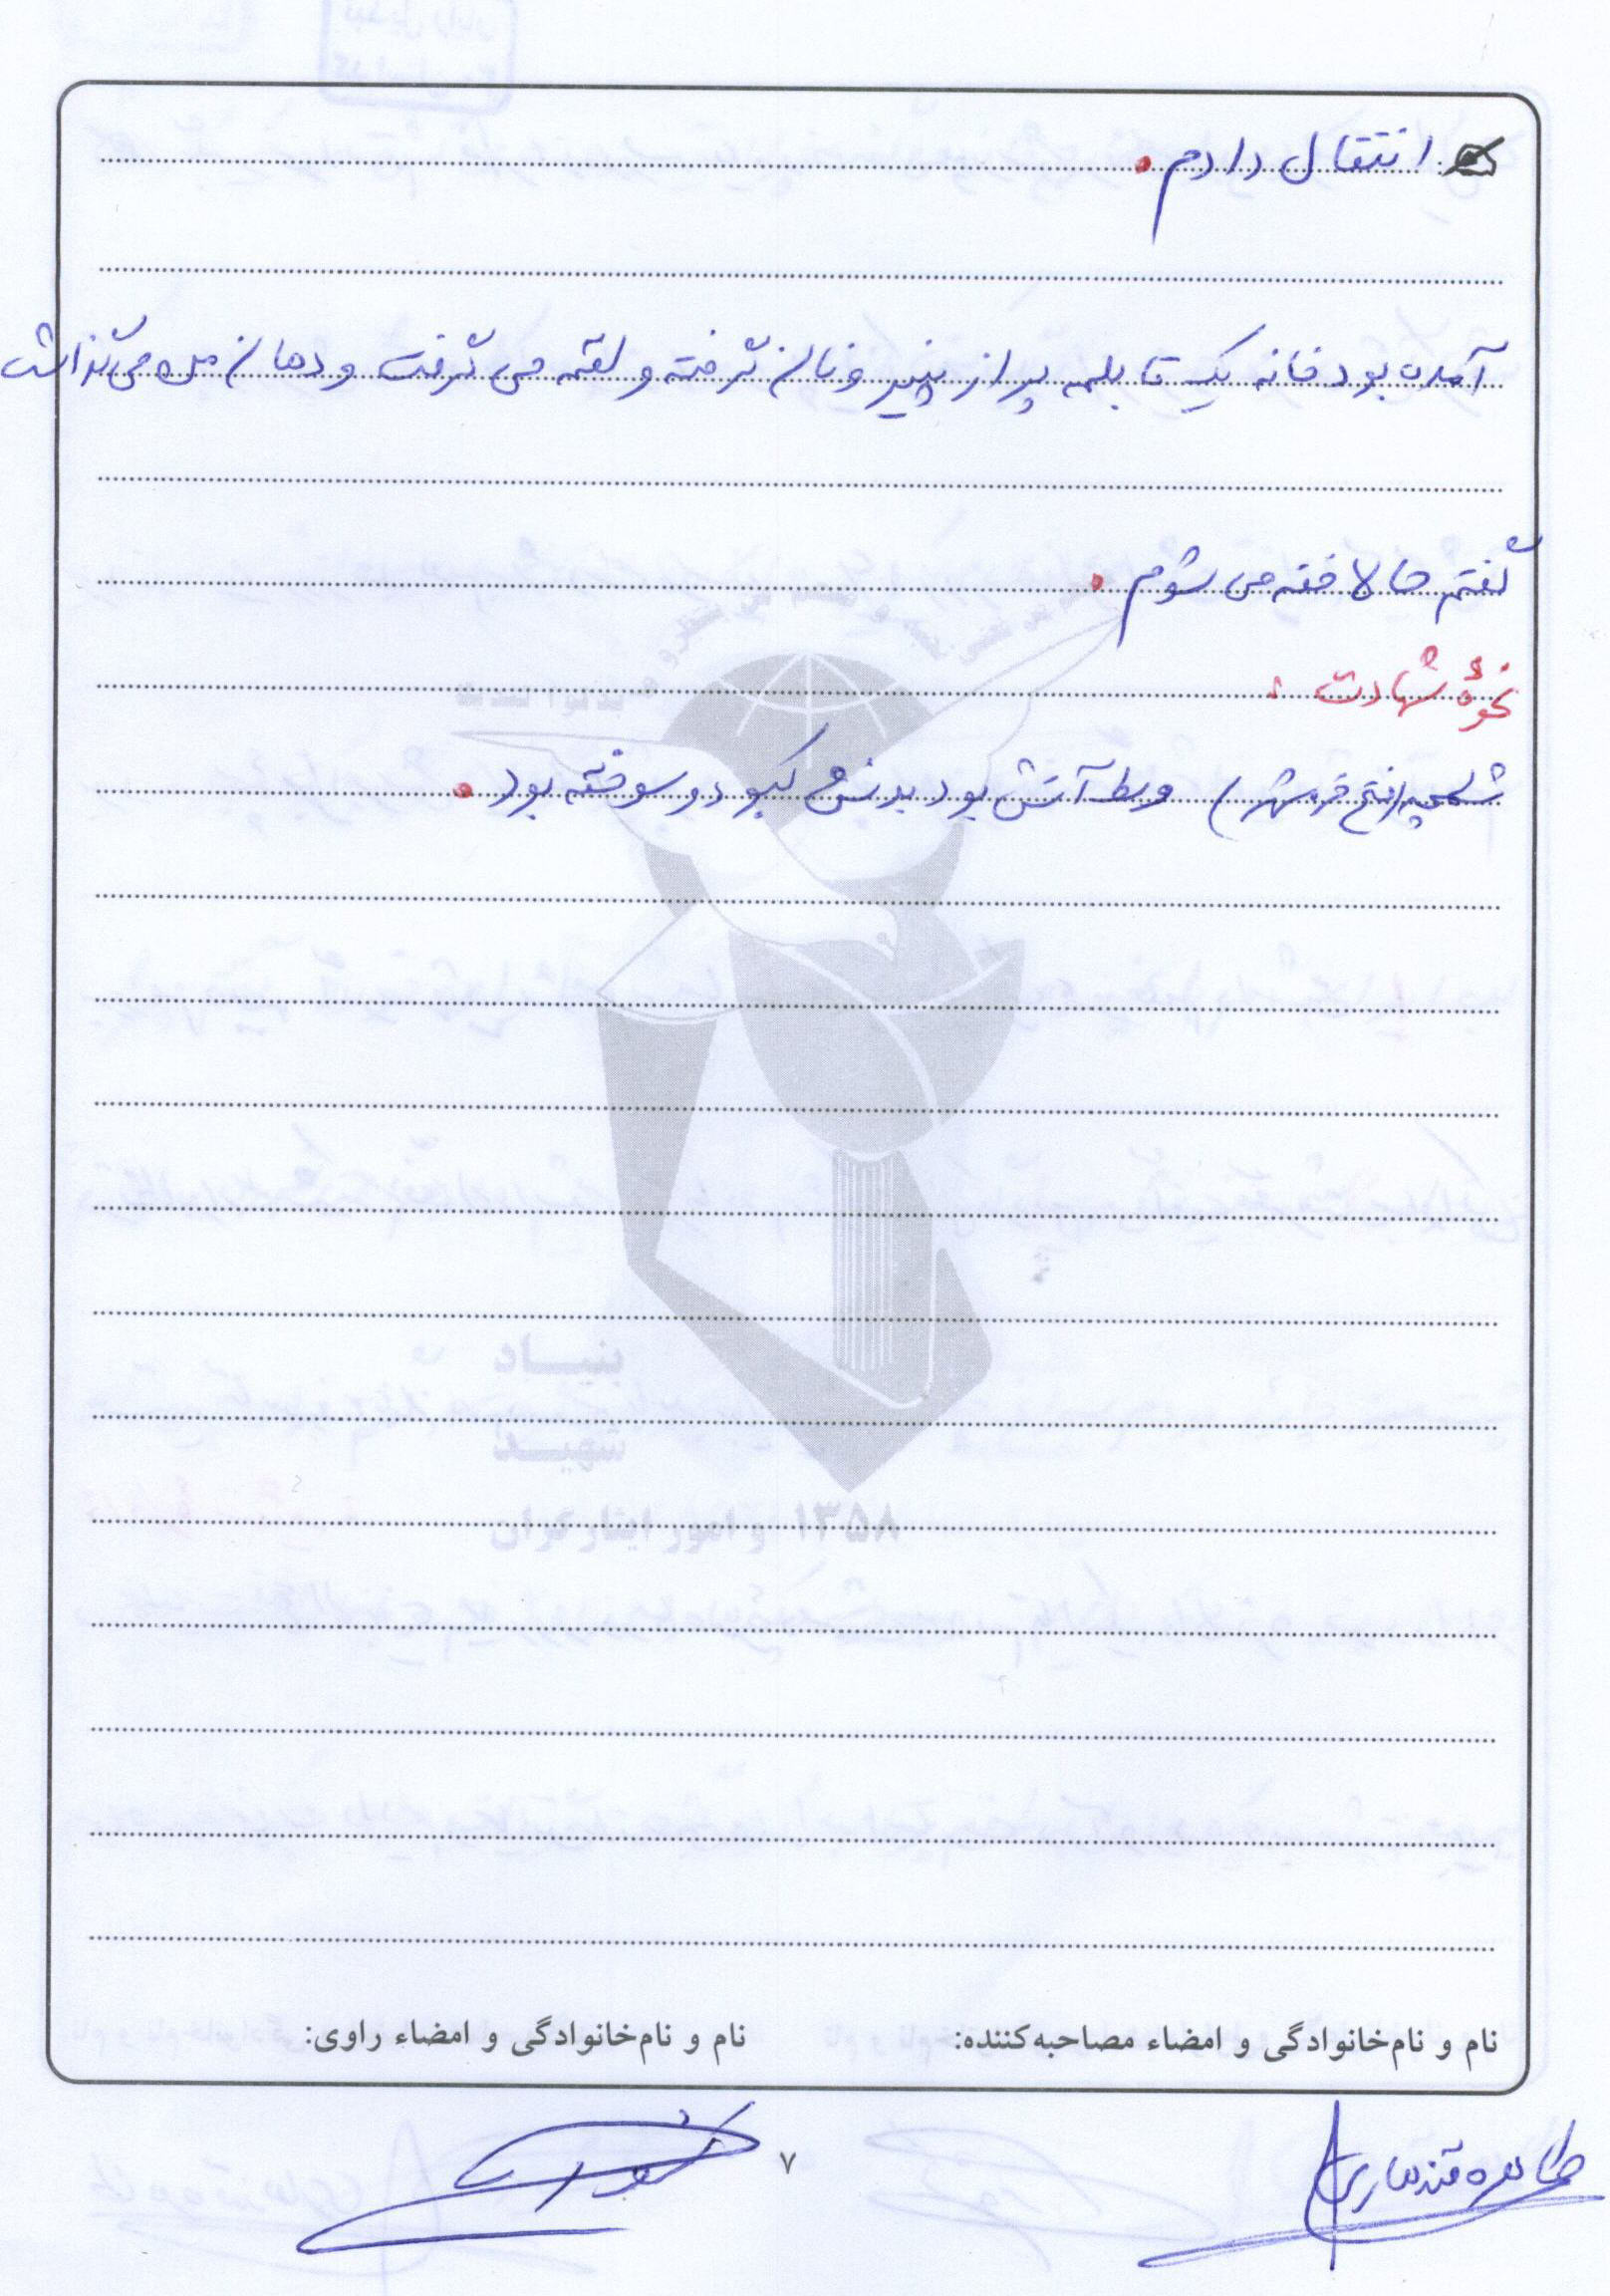 انتقال دادم.
آمده بود خانه یک قابلمه پر از پنیر و نان گرفته و لقمه می گرفت و دهان من می گذاشت
گفتم حالا خفه می شوم.
نحوهٔ شهادت:
شلمچه (فتح خرمشهر) وسط آتش بود بدنش کبود و سوخته بود.
بنیاد
شهید
و امور ایثارگران ۱۳۵۸
نام و نام‌خانوادگی و امضاء مصاحبه‌کننده: نام و نام‌خانوادگی و امضاء راوی:
طاهره قندهاری
۷